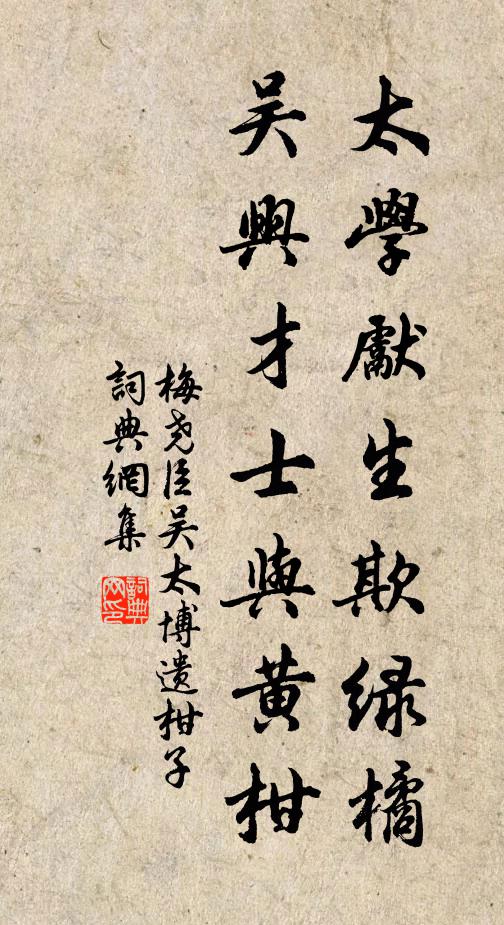 太學獻生欺綠橘
吳興才士與黃柑
梅尧臣吴太博遺柑子
詞典網集
詞典
网印